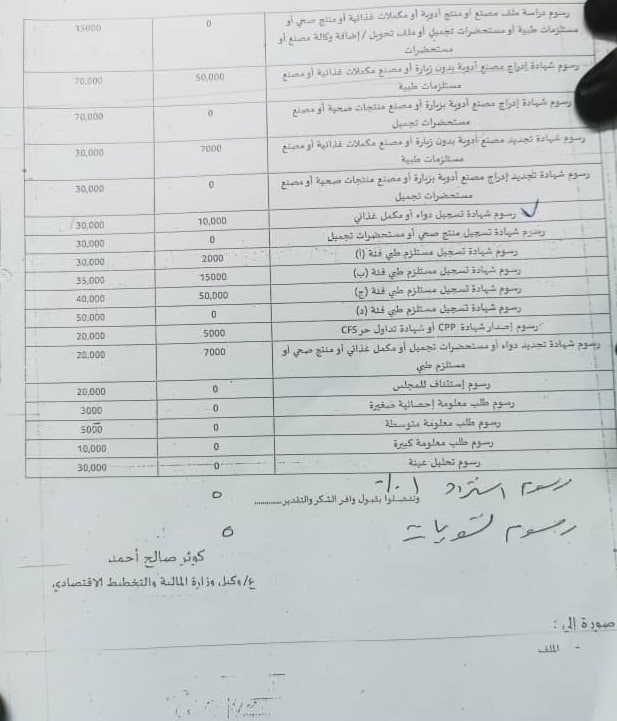 رسوم دراسة ملف مصنع أو منتج أدوية أو مكملات غذائية أو منتج صحي أو
مستلزمات طبية أو مستحضرات تجميل أو ملف تحويل / إضافة وكالة مصنع أو
مستحضرات
0
15000
رسوم شهادة إدراج مصنع أدوية بدون زيارة أو مصنع مكملات غذائية أو مصنع
مستلزمات طبية
50,000
70,000
رسوم شهادة إدراج مصنع أدوية بزيارة أو مصنع منتجات صحية أو مصنع
مستحضرات تجميل
0
70,000
رسوم شهادة تجديد مصنع أدوية بدون زيارة أو مصنع مكملات غذائية أو مصنع
مستلزمات طبية
7000
30,000
رسوم شهادة تجديد إدراج مصنع أدوية بزيارة أو مصنع منتجات صحية أو مصنع
مستحضرات تجميل
0
30,000
رسوم شهادة تسجيل دواء أو مكمل غذائي
10,000
30,000
رسوم شهادة تسجيل منتج صحي أو مستحضرات تجميل
0
30,000
رسوم شهادة تسجيل مستلزم طبي فئة (أ)
2000
30,000
رسوم شهادة تسجيل مستلزم طبي فئة (ب)
15000
35,000
رسوم شهادة تسجيل مستلزم طبي فئة (ج)
50,000
40,000
رسوم شهادة تسجيل مستلزم طبي فئة (د)
0
50,000
رسوم إصدار شهادة CPP أو شهادة تداول حر CFS
5000
20,000
رسوم شهادة تجديد دواء أو مستحضرات تجميل أو مكمل غذائي أو منتج صحي أو
مستلزم طبي
7000
20,000
رسوم إستئناف للمجلس
0
20,000
رسوم طلب معلومة إحصائية صغيرة
0
3000
رسوم طلب معلومة متوسطة
0
5000
رسوم طلب معلومة كبيرة
0
10,000
رسوم تحليل عينة
0
30,000
رسوم استرداد ١٠٪
0
وتفضلوا بقبول وافر الشكر والتقدير............
رسوم تسويات
0
كوثر صالح أحمد
ع/وكيل وزارة المالية والتخطيط الاقتصادي
صورة إلى :
- الملف